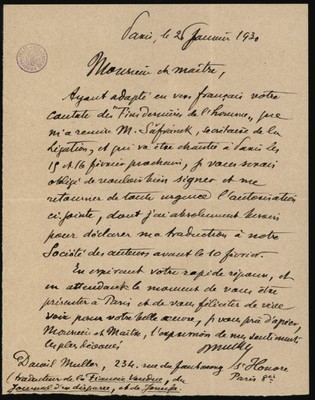 Paris, le 25 Janvier 1930
Monsieur et maître,
Ayant adapté en vers français votre
cantate des "Fins dernières de l'homme, que
m'a remise M. Šafránek, secrétaire de la
Légation, et qui va être chantée à Paris les
15 et 16 février prochains, je vous serais
obligé de vouloir bien signer et me
retourner de toute urgence l'autorisation
ci-jointe, dont j'ai absolument besoin
pour déclarer ma traduction à notre
Société des auteurs avant le 10 février.
En espérant votre rapide réponse, et
en attendant le moment de vous être
présenté à Paris et de vous féliciter de vive
voix pour votre belle œuvre, je vous prie d'agréer,
Monsieur et Maître, l'expression de mes sentiments
les plus dévoués
DMuller
Daniel Muller, 234, rue du faubourg St Honoré
Paris 8e
(traducteur de la Fiancée vendue, du
Journal d'un disparu, et de Jenufa.